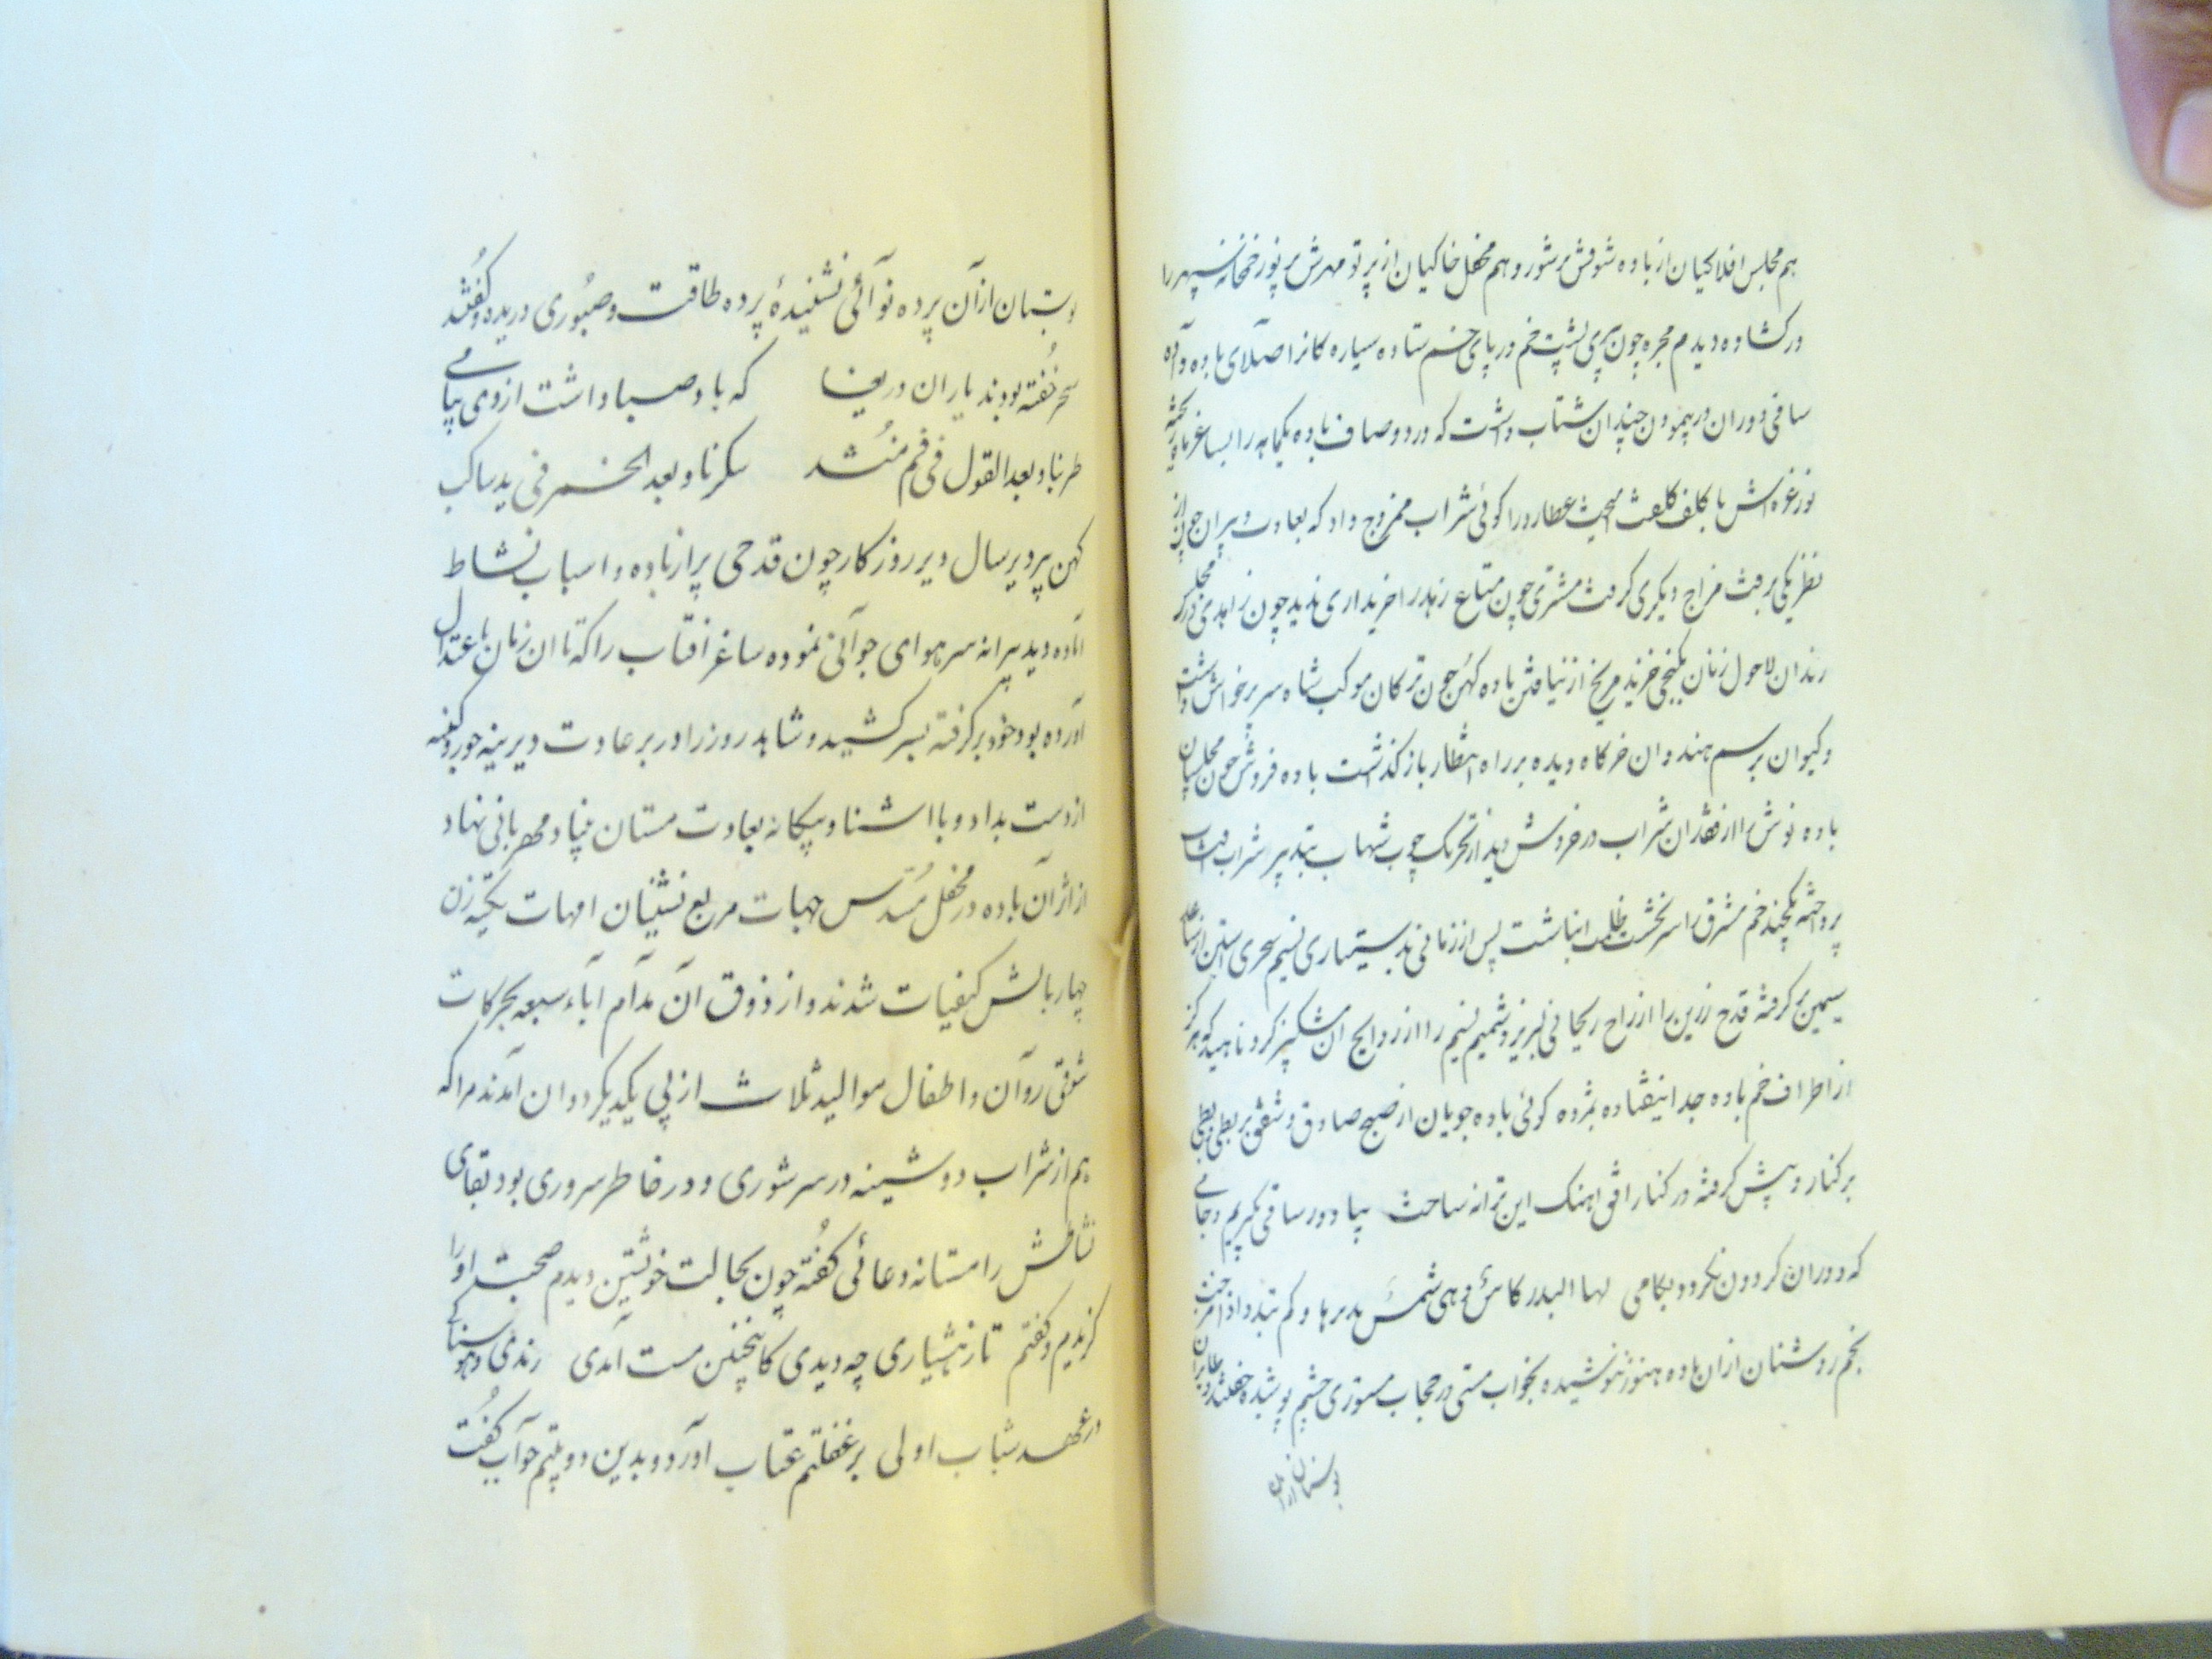 هم مجلس افلاکیان از باده شوقش پرشور و هم محفل خاکیان از پرتو مهرش پرنور خمخانه سپهر را
در کشاده دیدم مجره چون پیری پشت خم در پای خم ستاده سیاره کانرا صلای باده داده
ساقی دوران در پیمودن چندان شتاب داشت که درد و صاف باده یکماهه را بساغر ماه
نظر یکی برفت مزاج دیکری کرفت مشتری چون متاع زهد را خریداری ندید چون زاهدی در مجلس
رندان لاحول زنان بکنجی خزید مریخ از نیافتن باده کهن چون ترکان موکب شاه سر پرخاش داشت
و کیوان برسم هندوان خرکاه دیده بر راه انتظار باز کذاشت باده فروش چون مجلسیان
باده نوش را از فقدان شراب در خروش دید از تحریک چوب شهاب بتدبیر شراب
خم مشرق را سر بخشت ظلمت انباشت پس از زمانی بدستیاری نسیم سحری
سیمین بر کرفته قدح زرین را از راح ریحانی لبریز و شمیم نسیم را از روایح آن مشکبیز کرد ناهید کز
از اطراف خم باده جدا نیفتاده بمژده کوئی باده جویان از صبح صادق و شفق بربطی و بطی
بر کنار و پیش کرفته در کنار افق اهنک این ترانه ساخت بیا دور ساقی بکیریم و جامی
که دوران کردون نکردد بکامی لها البدر کاس و هی شمس یدیرها و کم تبدو اذا مزجت
نجم روشنان از ان باده هنوز ننوشیده بخواب مستی در حجاب مستوری چشم پوشیده خفتند و طایران
بوستان از ان
بوستان از آن پرده نوائی نشنیده پرده طاقت و صبوری دریده و کفتند
سحر خفته بودند یاران دریغا که باد صبا داشت از وی پیامی
طربنا و بعد القول فی فم منشد سکرنا و بعد الخمر فی ید ساکب
کهن پیر دیر سال دیر روزکار چون قدحی پر از باده و اسباب نشاط
اماده دید پیرانه سر هوای جوانی نموده ساغر افتاب را که تا ان زمان باعتدال
آورده بود خود برکرفته بسر کشید و شاهد روز را در بر عادت دیرینه جور و کینه
از دست بداد و با اشنا و بیکانه بعادت مستان بنیاد مهربانی نهاد
از اثر آن باده در محفل مسدس جهات مربع نشینان امهات تکیه زن
چهار بالش کیفیات شدند و از ذوق آن مدام آباء سبعه بحرکات
شوقی روان و اطفال موالید ثلاث از پی یکدیکر دوان آمدند مرا که
هم از شراب دوشینه در سر شوری و در خاطر سروری بود بقای
نشاطش را مستانه دعائی کفته چون بحالت خویشتن دیدم صحبت او را
کزیدم و کفتم تا ز هشیاری چه دیدی کاینچنین مست آمدی رندی و هوسناکی
در عهد شباب اولی بر غفلتم عتاب آورد و بدین دو بیتم جواب کفت